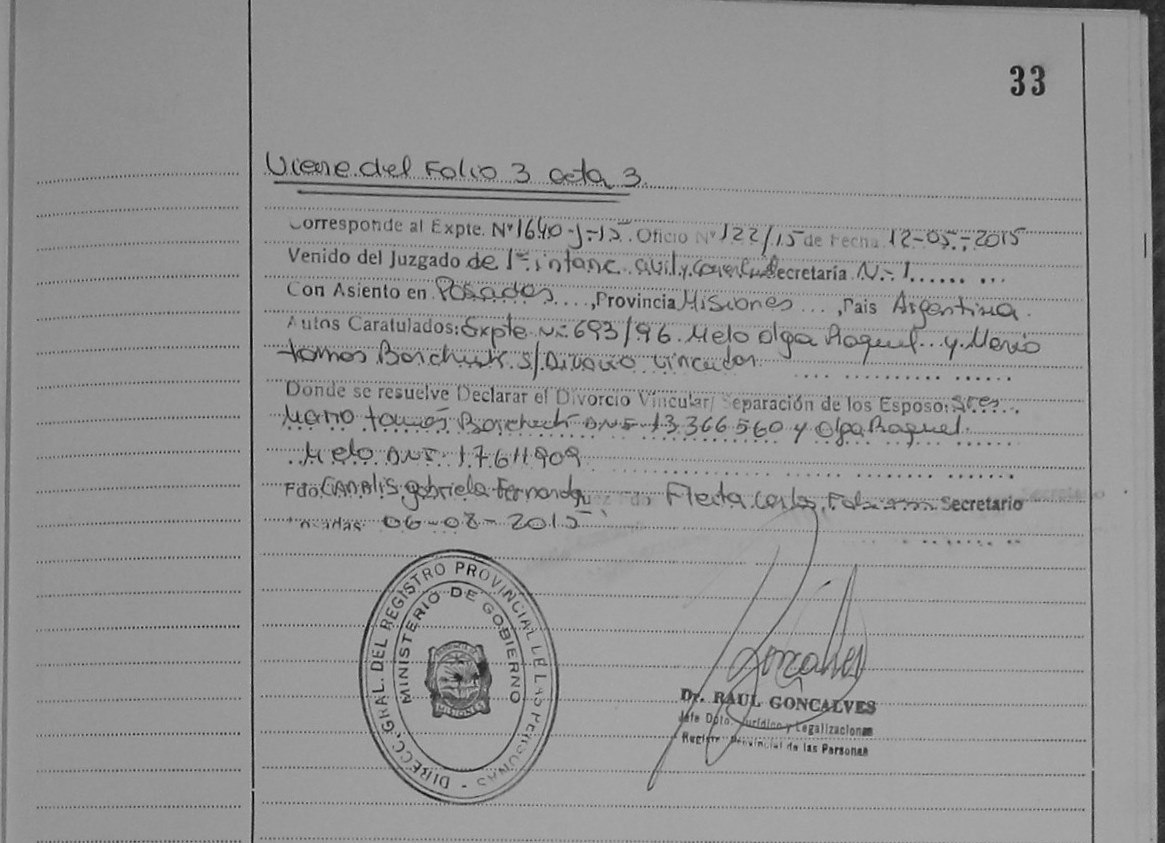 33
Viene del Folio 3 acta 3.
Corresponde al Expte. Nº 1640-J-15. Oficio Nº 122/15 de Fecha 12-05-2015
Venido del Juzgado de 1º Secretaria N-1
Con Asiento en Posadas ..., Provincia Misiones ..., Pais Argentina.
Autos Caratulados: Expte Nº 693/96. Melo Olga Raquel y Mario
Tomas Borchuk s/Divorcio Vincular
Donde se resuelve Declarar el Divorcio Vincular/ Separación de los Esposo: Sres.
Mario Tomás DNI 13.366.560 y Olga Raquel
Melo DNI 17.611.909
Fdo CANALIS, Gabriela Fernanda Carlos Secretario
Posadas 06-08-2015
DIRECC. GRAL. DEL REGISTRO PROVINCIAL DE LAS PERSONAS
MINISTERIO DE GOBIERNO
MISIONES
Dr. RAUL GONCALVES
Jefe Dpto. Jurídico y Legalizaciones
Registro Provincial de las Personas